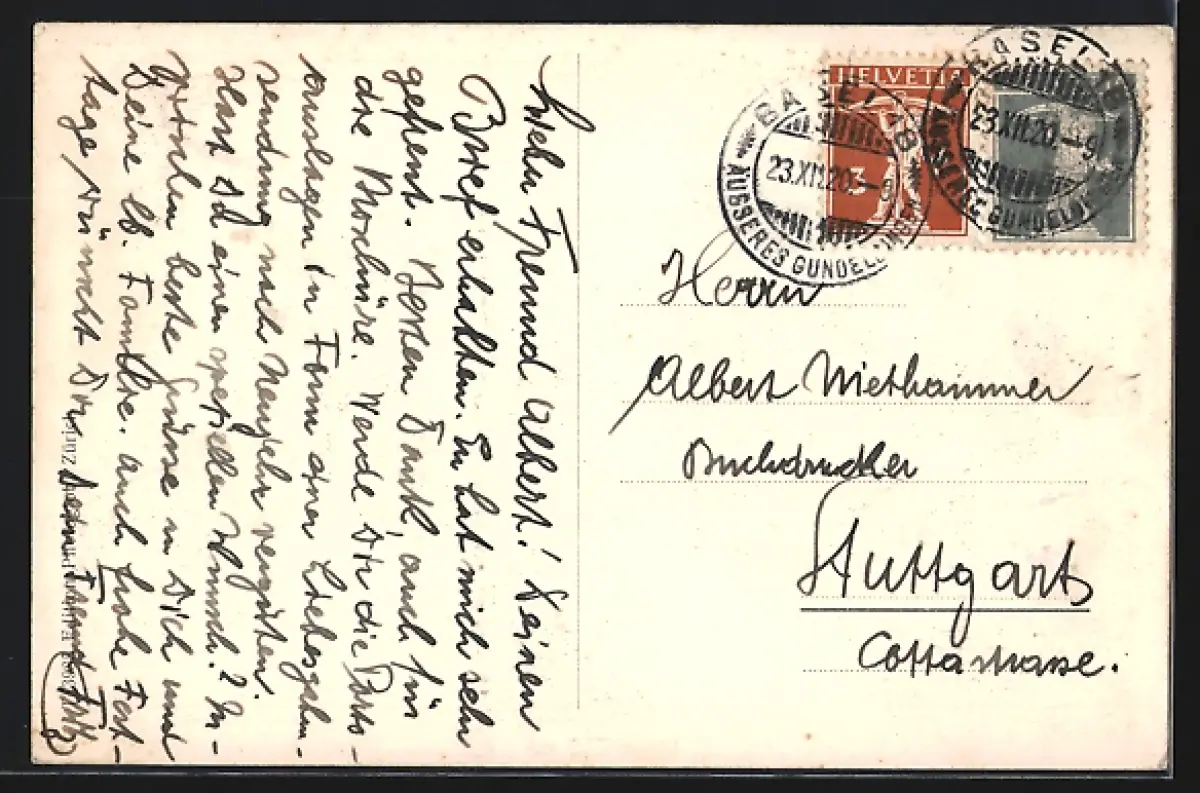 Lieber Freund Albert! Deinen
Brief erhalten. Er hat mich sehr
gefreut. Besten Dank, auch für
die Broschüre. Werde Dir die Porto-
auslagen in Form einer Liebesgaben-
sendung nach Neujahr vergüten.
Hast Du einen speziellen Wunsch? In-
zwischen beste Grüsse an Dich und
Deine lb. Familie. Auch frohe Fest-
tage wünscht Dir Dein Freund Fritz
HELVETIA
3
BASEL 18
23.XII.20.—9
ÄUSSERES GUNDELDINGEN
BASEL 18
23.XII.20.—9
ÄUSSERES GUNDELDINGEN
Herrn
Albert Niethammer
Buchdrucker
Stuttgart
Cottastrasse.